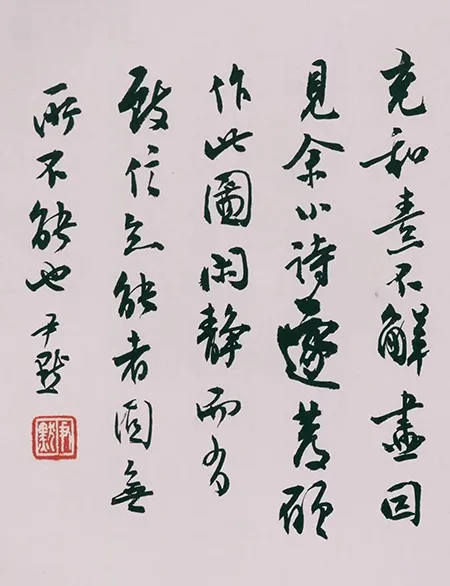 充和素不解畫因
見余小诗遂發願
作此圖閑静而有
致信乎能者固無
所不能也 尹默
尹默